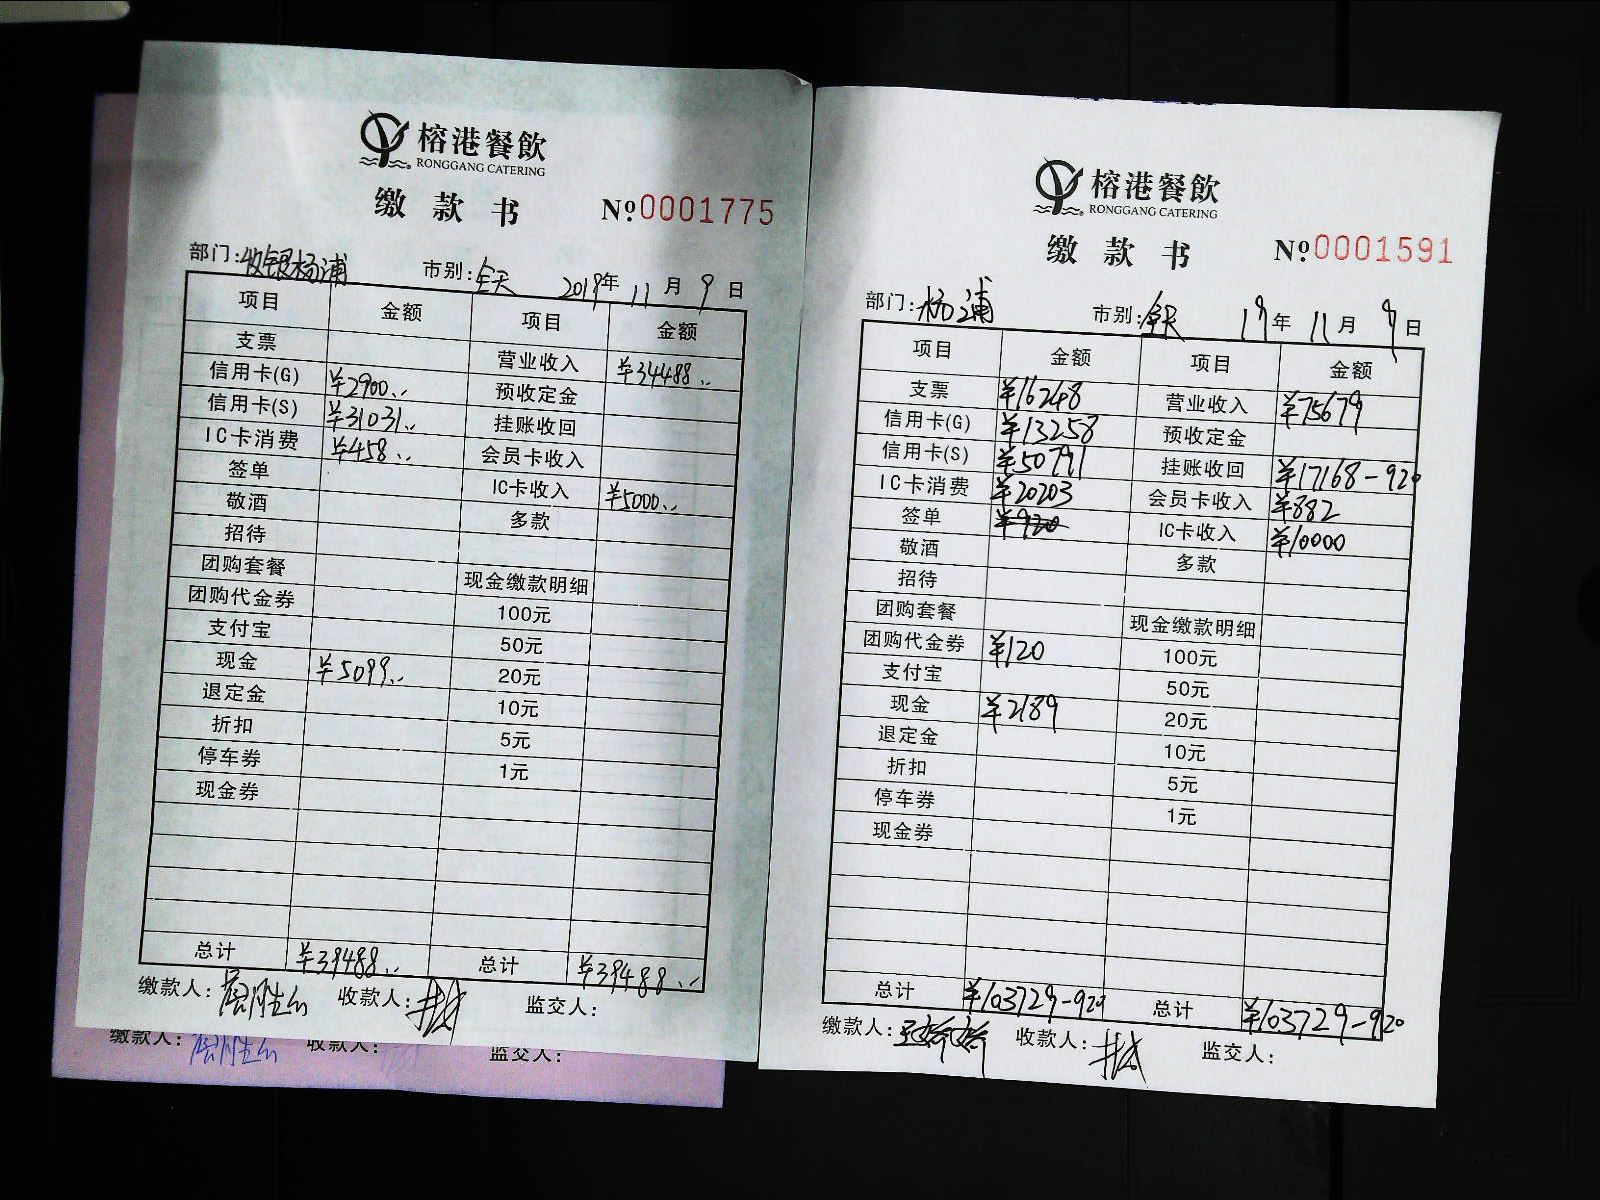 榕港餐飲
RONGGANG CATERING
缴款书 №0001775
部门:收银杨浦 市别:全天 2019年11月9日
项目 金额 项目 金额
支票 营业收入 ¥34488..
信用卡(G) ¥2900.. 预收定金
信用卡(S) ¥31031.. 挂账收回
IC卡消费 ¥458.. 会员卡收入
签单 IC卡收入 ¥5000..
敬酒 多款
招待
团购套餐 现金缴款明细
团购代金券 100元
支付宝 50元
现金 ¥5099.. 20元
退定金 10元
折扣 5元
停车券 1元
现金券
总计 ¥39488.. 总计 ¥39488..
缴款人: 收款人: 监交人:
缴款人: 收款人: 监交人:
榕港餐飲
RONGGANG CATERING
缴款书 №0001591
部门:杨浦 市别:全天 19年11月9日
项目 金额 项目 金额
支票 ¥16248 营业收入 ¥75679
信用卡(G) ¥13258 预收定金
信用卡(S) ¥50791 挂账收回 ¥17168-920
IC卡消费 ¥20203 会员卡收入 ¥882
签单 ¥920 IC卡收入 ¥10000
敬酒 多款
招待
团购套餐 现金缴款明细
团购代金券 ¥120 100元
支付宝 50元
现金 ¥2189 20元
退定金 10元
折扣 5元
停车券 1元
现金券
总计 ¥103729-920 总计 ¥103729-920
缴款人: 收款人: 监交人: